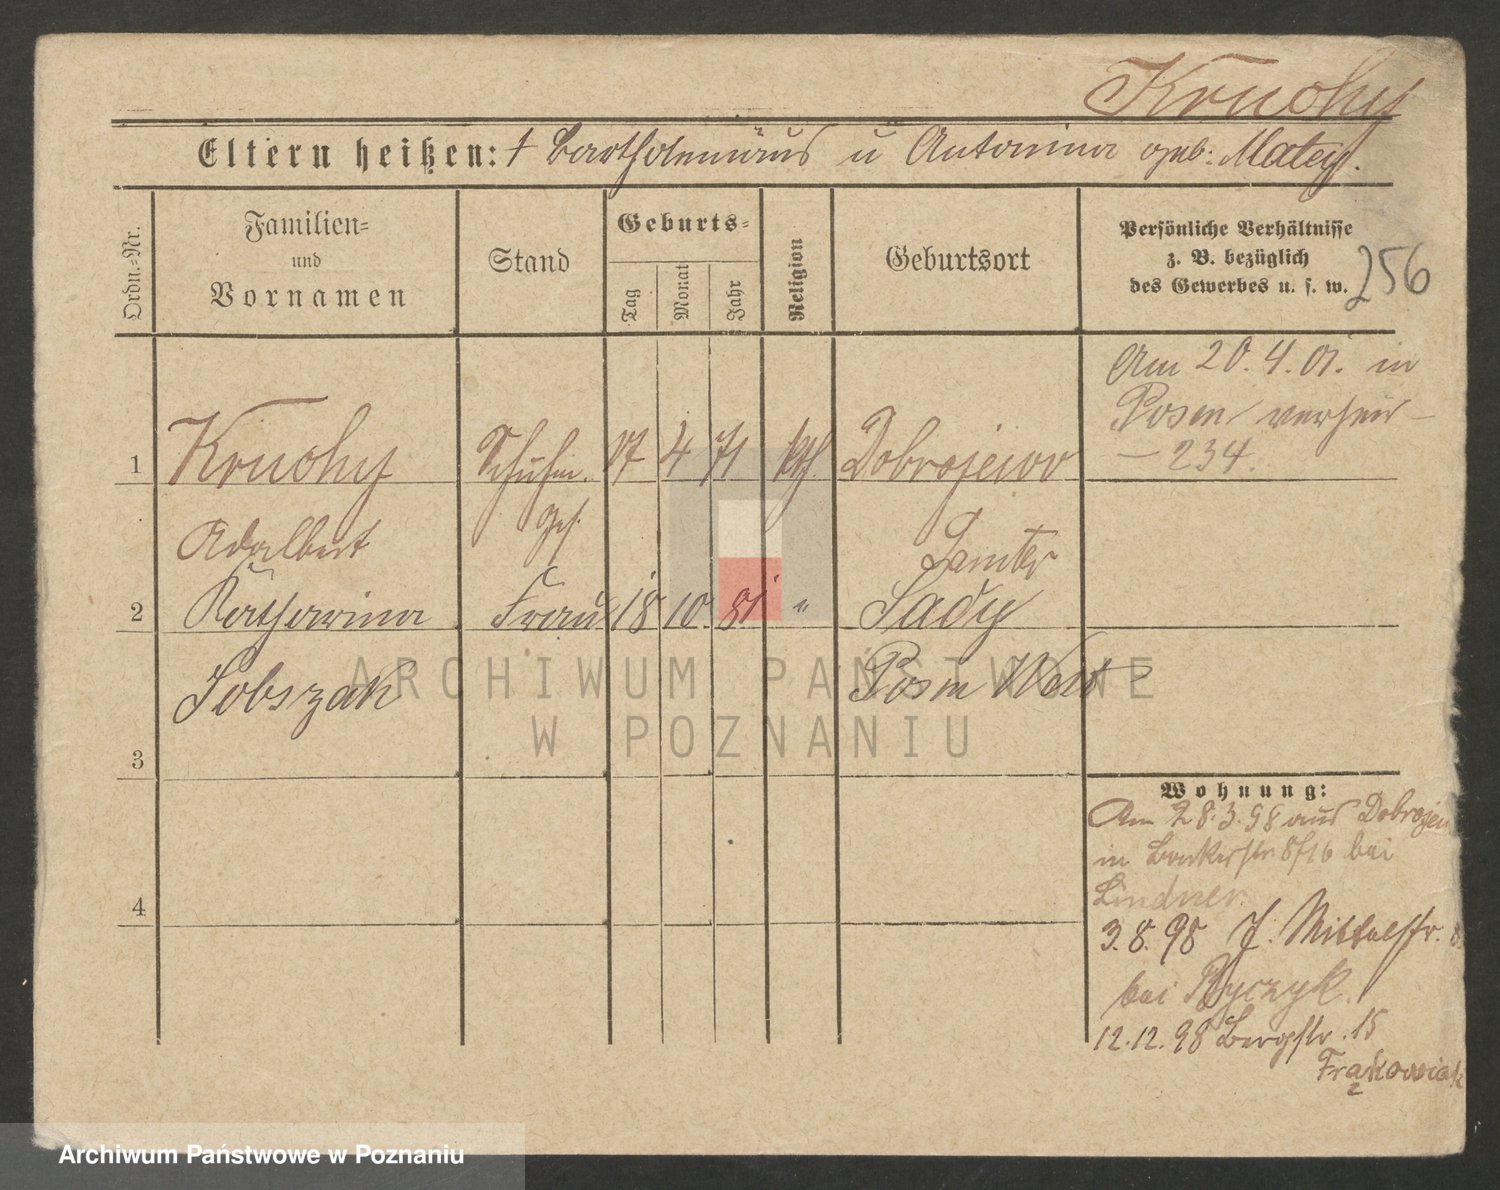 Kruohy
Eltern heißen: † Bartholemäus u Antonina geb: Matey.
Ordn.-Nr.
Familien-
und
Vornamen
Stand
Geburts-
Tag
Monat
Jahr
Religion
Geburtsort
Persönliche Verhältnisse
z. B. bezüglich
des Gewerbes u. s. w.
256
Am 20.4.01. in
Posen verheir-
- 234.
1 Kruohy Schuhm. 17 4 71 kth. Dobrojewo
Adalbert ges. Samter
2 Katharina Frau 18 10. 81 " Sady
Sobszak Posen West
3
Wohnung:
Am 28.3.98 aus Dobrojew
in Bäckerstr. bei
Lindner.
4
3.8.98 J. Mittelstr.
bei Ryczyk.
12.12.98 Bergstr. 15
Frąkowiak
ARCHIWUM PAŃSTWOWE
W POZNANIU
Archiwum Państwowe w Poznaniu